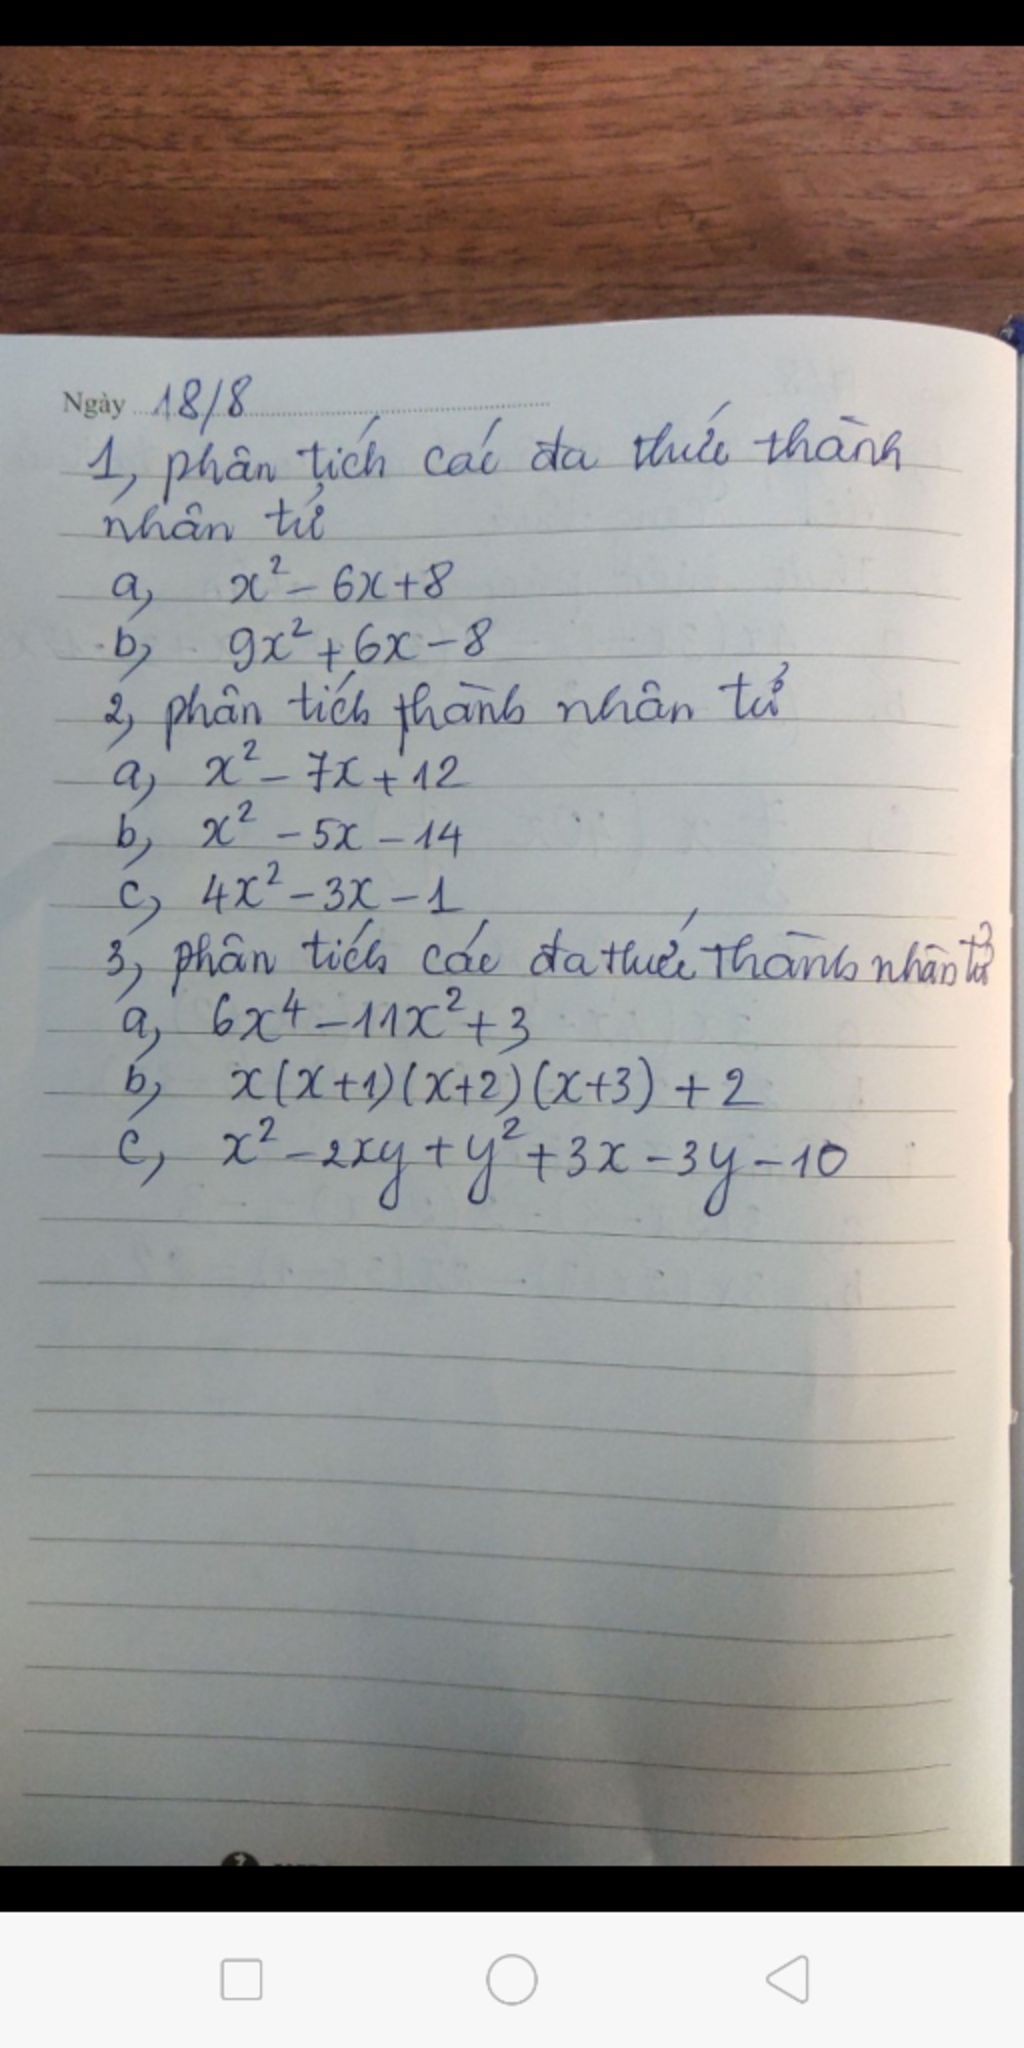 Ngày 18/8
1, phân tích các đa thức thành
nhân tử
a, x² - 6x + 8
b, 9x² + 6x - 8
2, phân tích thành nhân tử
a, x² - 7x + 12
b, x² - 5x - 14
c, 4x² - 3x - 1
3, phân tích các đa thức thành nhân tử
a, 6x⁴ - 11x² + 3
b, x(x+1)(x+2)(x+3) + 2
c, x² - 2xy + y² + 3x - 3y - 10